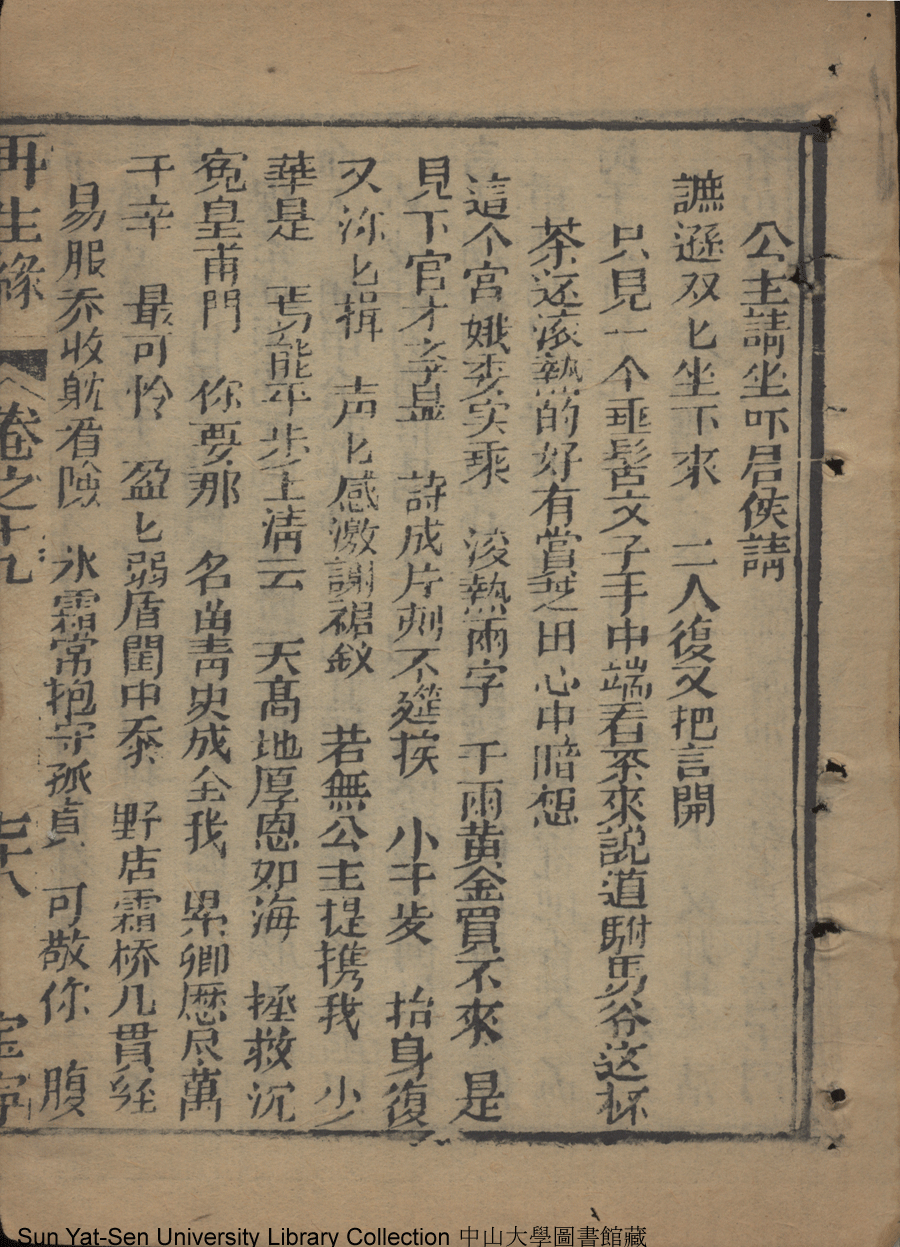 公主請坐吓君侯請
謙遜双匕坐下來　二人復又把言開
只見一个垂髫文子手中端看茶來說道駙馬爷这杯
茶还滚熱的好有賞芝田心中暗想
這个宮娥委实乖　滚熱兩字　千兩黄金買不來　是
見下官才李显　詩成片刻不筵挨　小千步　抬身復
又深匕揖　声匕感激謝裙釵　若無公主提携我　少
華是　焉能平步上淸云　天髙地厚恩如海　拯救沉
冤皇甫門　你要那　名畄靑史成全我　累卿歷尽萬
千幸　最可怜　盈匕弱盾閨中秦　野店霜桥几貫经
易服乔收躭看險　氷霜常抱守孤貞　可敬你　腹
再生緣　卷之十九　七十八
Sun Yat-Sen University Library Collection 中山大學圖書館藏